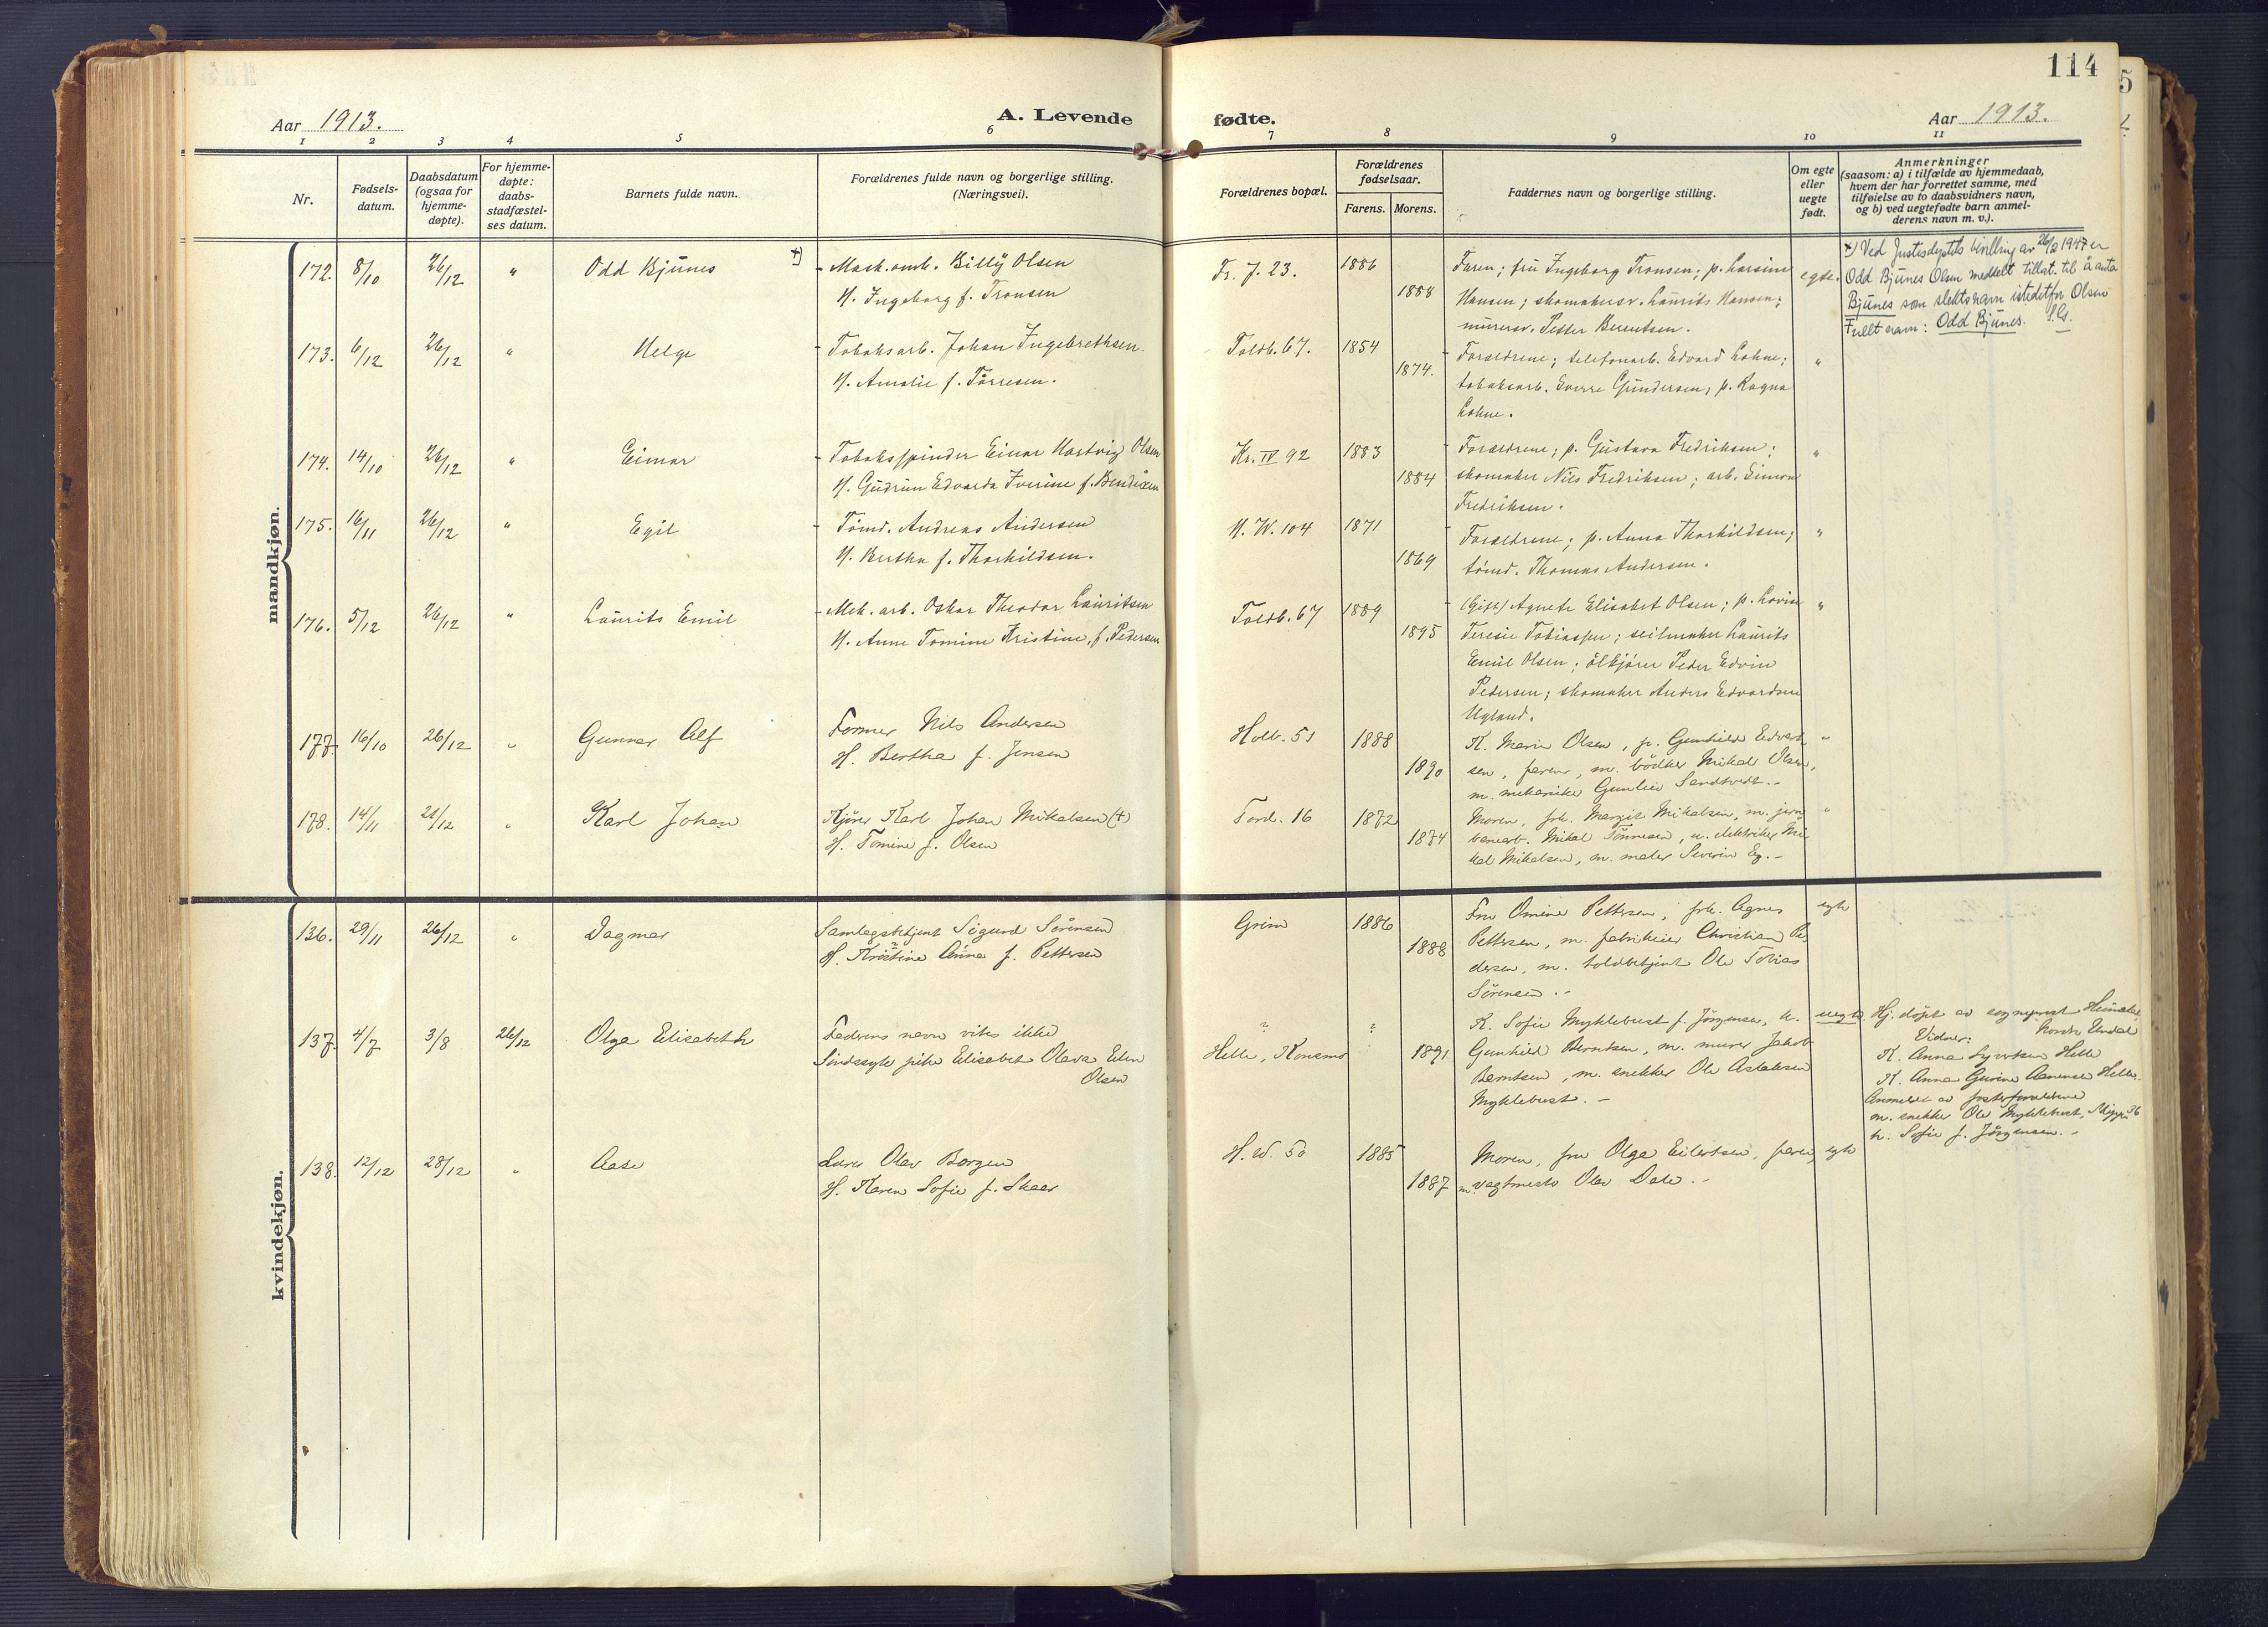 114
Aar 1913.
A. Levende fødte.
Aar 1913.
1 2 3 4 5 6 7 8 9 10 11
Nr.
Fødsels-
datum.
Daabsdatum
(ogsaa for
hjemme-
døpte).
For hjemme-
døpte:
daabs-
stadfæstel-
ses datum.
Barnets fulde navn.
Forældrenes fulde navn og borgerlige stilling.
(Næringsvei).
Forældrenes bopæl.
Forældrenes
fødselsaar.
Farens. Morens.
Faddernes navn og borgerlige stilling.
Om egte
eller
uegte
født.
Anmerkninger
(saasom: a) i tilfælde av hjemmedaab,
hvem der har forrettet samme, med
tilføielse av to daabsvidners navn,
og b) ved uegtefødte barn anmel-
derens navn m. v.).
mandkjøn.
172. 8/10 26/12 " Odd Bjünes x)
Mask.arb. Billÿ Olsen
H. Ingeborg f. Tronsen
Fr. J. 23. 1886
1888
Faren; frü Ingeborg Tronsen; p. Larsine
Hansen; skomakersv. Laürits Hansen;
murersv. Petter Berentsen.
egte.
x) Ved Justisdepts bevilling av 26/2 1947 er
Odd Bjünes Olsen meddelt tillat. til å anta
Bjünes som slektsnavn istedetfor Olsen
Fullt navn: Odd Bjünes. S.G.
173. 6/12 26/12 " Helge
Tobaksarb. Johan Ingebrethsen.
H. Amalie f. Tørresen.
Toldb. 67. 1854
1874.
Forældrene; telefonarb. Edvard Lohne;
tobaksarb. Sverre Gündersen; p. Ragna
Lohne.
"
174. 14/10 26/12 " Eimar
Tobaksspinder Einar Hartvig Olsen
H. Güdrün Edvarda Iverine f. Bendixen
Kr. IV 92 1883
1884
Forældrene; p. Güstava Fredriksen;
skomaker Nils Fredriksen; arb. Simon
Fredriksen.
"
175. 16/11 26/12 " Egil
Tømd. Andreas Andersen
H. Bertha f. Thorkildsen.
H. W. 104 1871
1869
Forældrene; p. Anna Thorkildsen;
tømd. Thomas Andersen.
"
176. 5/12 26/12 " Laürits Emil
Mek. arb. Oskar Theodor Laüritsen
H. Anne Tomine Kristine, f. Pedersen
Toldb. 67 1889
1895
(Gift) Agnete Elisabet Olsen; p. Lovise
Teresie Tobiassen; seilmaker Laürits
Emil Olsen; ølkjører Peder Edvin
Pedersen; skomaker Anders Edvardsen
Ugland.
"
177. 16/10 26/12 " Gunnar Alf
Former Nils Andersen
H. Bertha f. Jensen
Holb. 51 1888
1890
K. Marie Olsen, p. Gunhild Edvard-
sen, faren, m. bødker Mikal Olsen,
m. mekaniker Gunleiv Sandtvedt. -
"
178. 14/11 21/12 " Karl Johan
Kjører Karl Johan Mikalsen (+)
H. Tomine f. Olsen
Tord. 16 1872
1874
Moren, frk. Margit Mikalsen, m. jern-
banearb. Mikal Tönnesen, u. elektriker Mi-
kal Mikalsen, m. maler Severin Eg. -
"
kvindekjøn.
136. 29/11 26/12 " Dagmar
Samlagsbetjent Sigurd Sørensen
H. Kristine Anna f. Pettersen
Grim 1886
1888
Fru Omine Pettersen, frk. Agnes
Pettersen, m. fabrikeier Christian Pe-
dersen, m. toldbetjent Ole Tobias
Sørensen. -
egte
137. 4/7 3/8 26/12 Olga Elisabeth
Faderens navn vites ikke
Sindssyk pike Elisabet Olava Elen
Olsen
?
Helle, Konsmo
?
1891
K. Sofie Myklebust f. Jörgensen, k.
Gunhild Berntsen, m. murer Jakob
Berntsen, m. snekker Ole Aslaksen
Myklebust. -
uegte.
Hj. døpt av sogneprest
Vidner: Nordre Undal
K. Anna Syvertsen Helle
K. Anna Gurine Aanensen Helle.
Anmeldt av fosterforældrene
m. snekker Ole Myklebust, Skippg. 36
h. Sofie f. Jörgensen. -
138. 12/12 28/12 " Aase
Lærer Olav Borgen
H. Karen Sofie f. Skaar
H. W. 50 1885
1887
Moren, fru Olga Eilertsen, faren,
m. vagtmester Olav Dale. -
egte